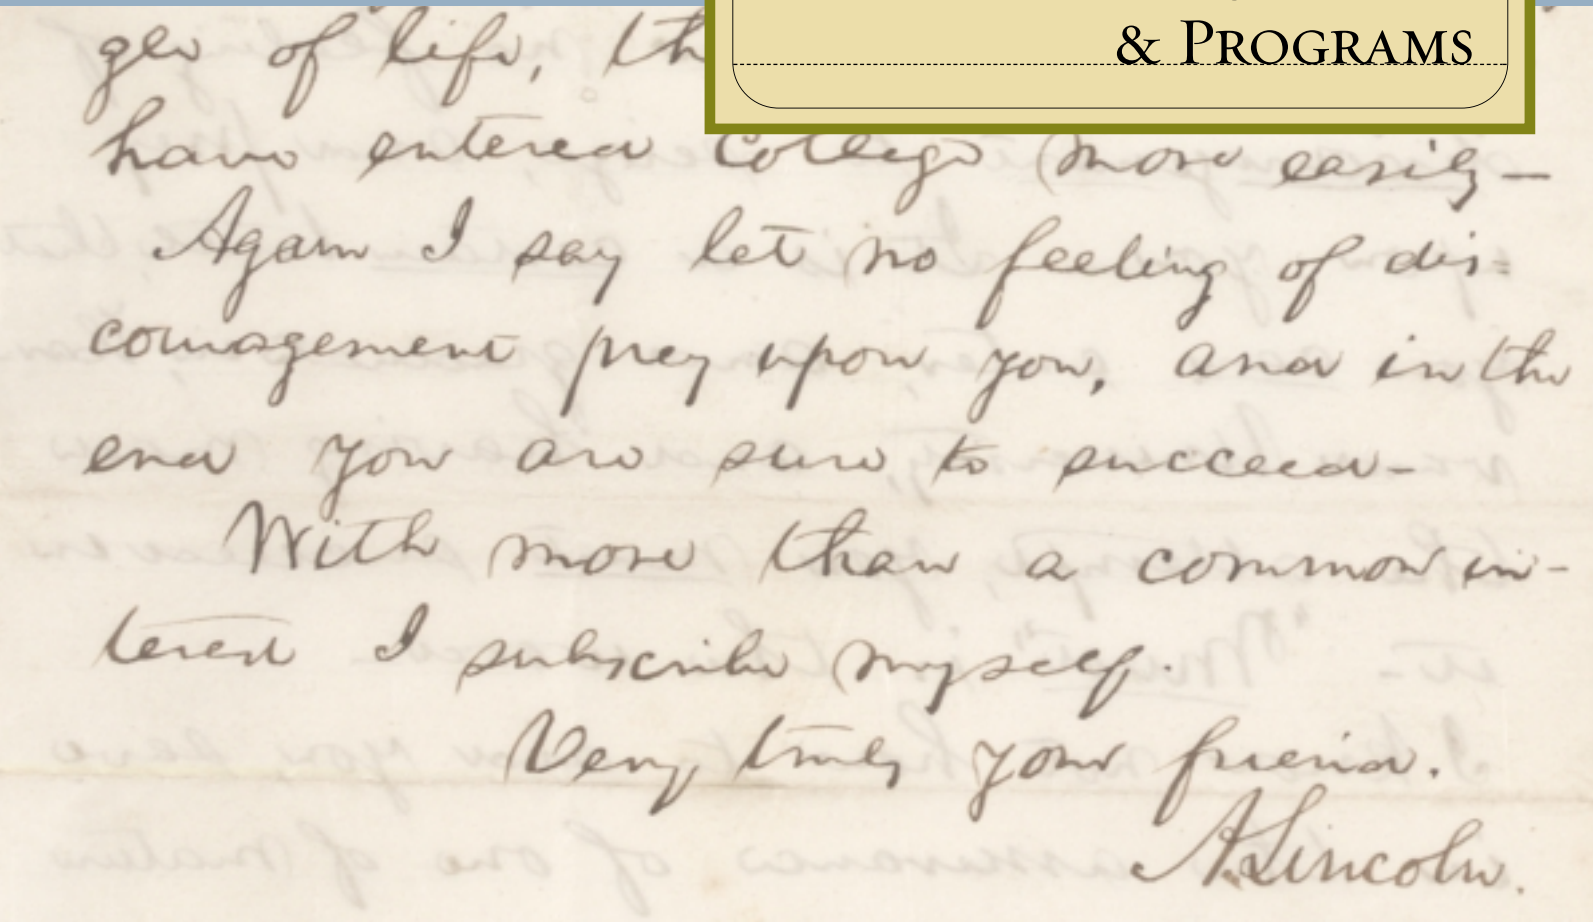 & PROGRAMS
gle of life, th
have entered college more easily—
Again I say let no feeling of dis=
couragement prey upon you, and in the
end you are sure to succeed-
With more than a common in-
terest I subscribe myself.
Very truly your friend.
A. Lincoln.